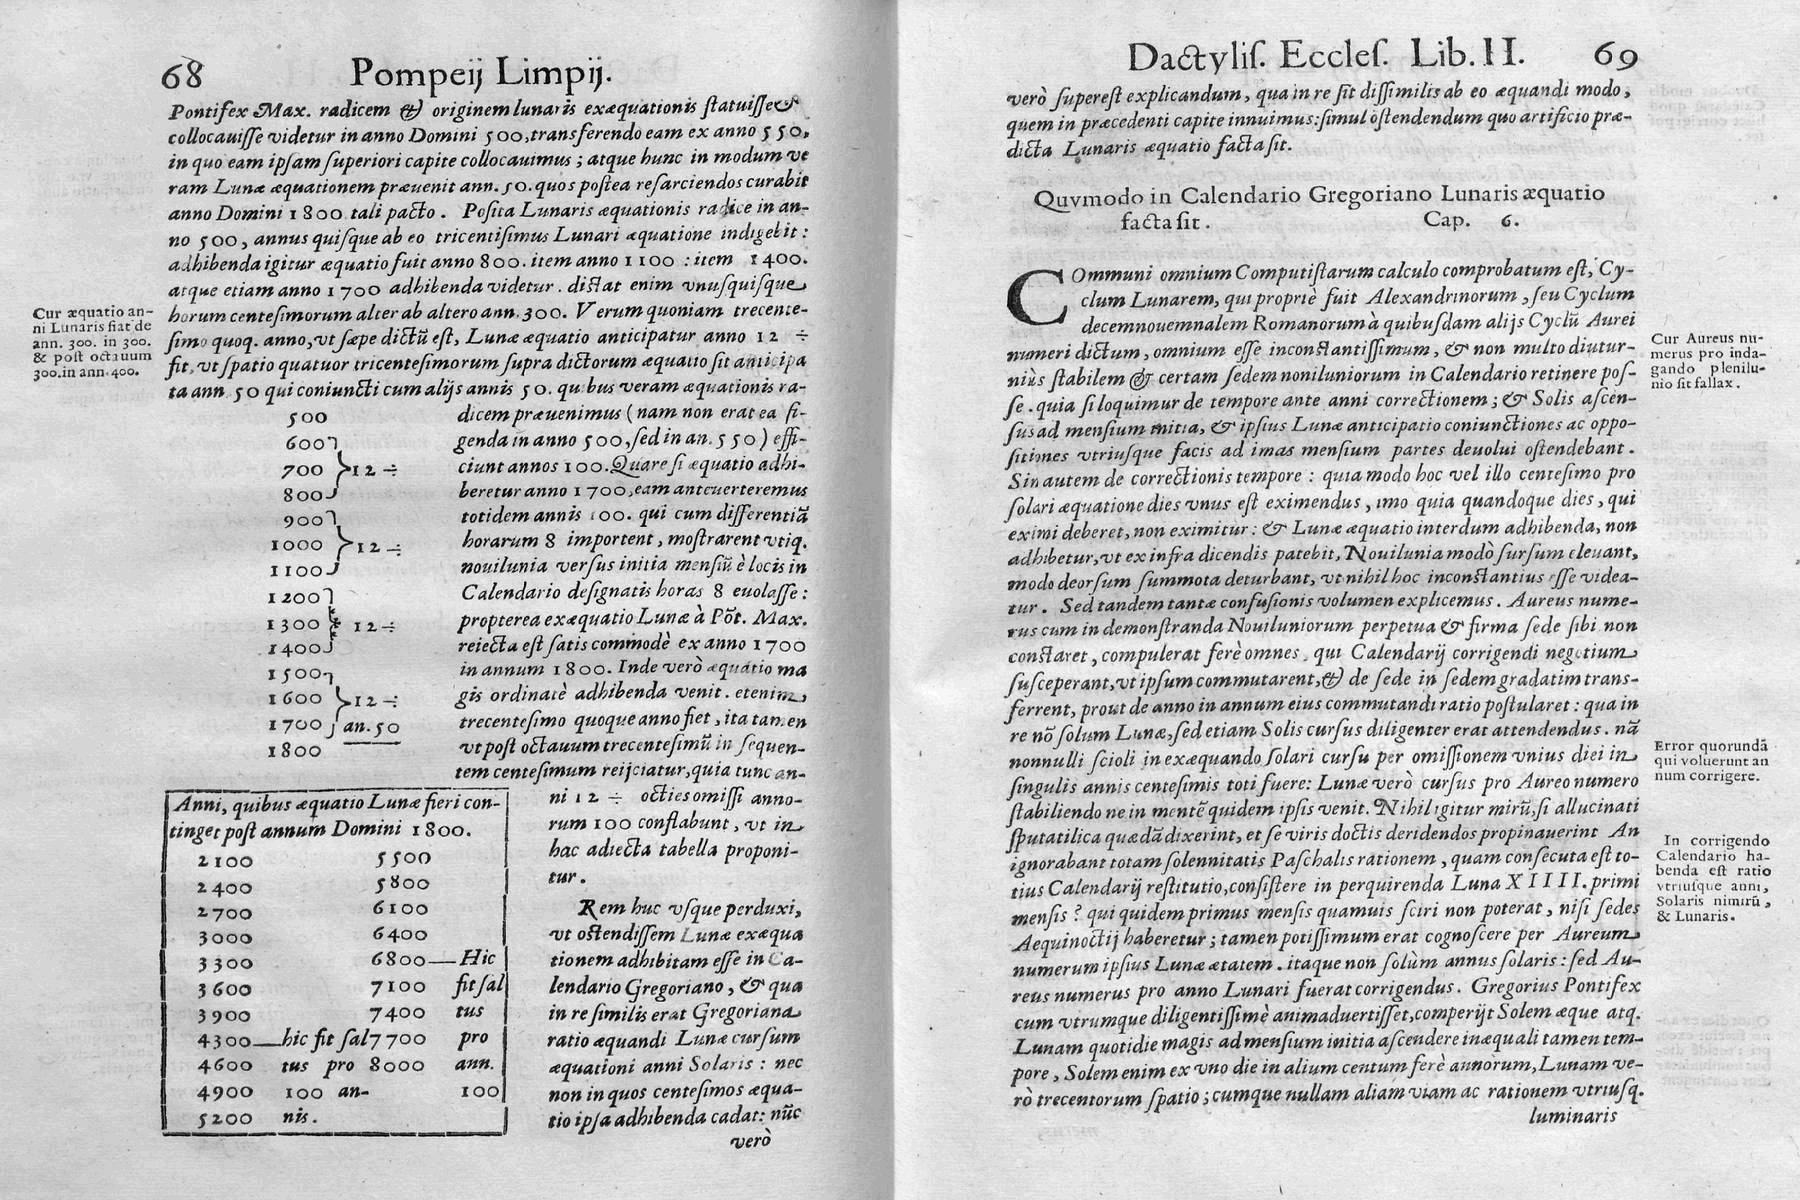 68 Pompeij Limpij.
Pontifex Max. radicem & originem lunaris exæquationis ſtatuiſſe &
collocauiſſe videtur in anno Domini 500, transferendo eam ex anno 550,
in quo eam ipſam ſuperiori capite collocauimus; atque hunc in modum ve
ram Lunæ æquationem præuenit ann. 50. quos poſtea reſarciendos curabit
anno Domini 1800 tali pacto. Poſita Lunaris æquationis radice in an-
no 500, annus quiſque ab eo tricentiſimus Lunari æquatione indigebit:
adhibenda igitur æquatio fuit anno 800. item anno 1100 : item 1400.
atque etiam anno 1700 adhibenda videtur. diſtat enim vnuſquiſque
horum centeſimorum alter ab altero ann. 300. Verum quoniam trecente-
ſimo quoq. anno, vt ſæpe dictũ eſt, Lunæ æquatio anticipatur anno 12 ÷
fit, vt ſpatio quatuor tricenteſimorum ſupra dictorum æquatio ſit anticipa
ta ann. 50 qui coniuncti cum alijs annis 50. quibus veram æquationis ra-
Cur æquatio an-
ni Lunaris fiat de
ann. 300. in 300.
& poſt octauum
300. in ann. 400.
500
600
700 12 ÷
800
900
1000 12 ÷
1100
1200
1300 12 ÷
1400
1500
1600 12 ÷
1700 an. 50
1800
dicem præuenimus (nam non erat ea fi-
genda in anno 500, ſed in an. 550) effi-
ciunt annos 100. Quare ſi æquatio adhi-
beretur anno 1700, eam anteuerteremus
totidem annis 100. qui cum differentiã
horarum 8 importent, moſtrarent vtiq.
nouilunia verſus initia menſiũ è locis in
Calendario deſignatis horas 8 euolaſſe:
propterea exæquatio Lunæ à Põt. Max.
reiecta eſt ſatis commodè ex anno 1700
in annum 1800. Inde verò æquatio ma
gis ordinatè adhibenda venit. etenim
trecenteſimo quoque anno fiet, ita tamen
vt poſt octauum trecenteſimũ in ſequen-
tem centeſimum reijciatur, quia tunc an-
ni 12 ÷ octies omiſſi anno-
rum 100 conflabunt, vt in
hac adiecta tabella proponi-
tur.
Rem huc vſque perduxi,
vt oſtendiſſem Lunæ exæqua
tionem adhibitam eſſe in Ca-
lendario Gregoriano, & qua
in re ſimilis erat Gregoriana
ratio æquandi Lunæ curſum
æquationi anni Solaris: nec
non in quos centeſimos æqua-
tio ipſa adhibenda cadat: nũc
verò
Anni, quibus æquatio Lunæ fieri con-
tinget poſt annum Domini 1800.
2100 5500
2400 5800
2700 6100
3000 6400
3300 6800—Hic
3600 7100 fit ſal
3900 7400 tus
4300—hic fit ſal 7700 pro
4600 tus pro 8000 ann.
4900 100 an- 100
5200 nis.
Dactyliſ. Eccleſ. Lib. II. 69
verò ſupereſt explicandum, qua in re ſit diſſimilis ab eo æquandi modo,
quem in præcedenti capite innuimus: ſimul oſtendendum quo artificio præ-
dicta Lunaris æquatio facta ſit.
Quvmodo in Calendario Gregoriano Lunaris æquatio
facta ſit. Cap. 6.
COmmuni omnium Computiſtarum calculo comprobatum eſt, Cy-
clum Lunarem, qui propriè fuit Alexandrinorum, ſeu Cyclum
decemnouemnalem Romanorum à quibuſdam alijs Cyclũ Aurei
numeri dictum, omnium eſſe inconſtantiſſimum, & non multo diutur-
niùs ſtabilem & certam ſedem noniluniorum in Calendario retinere poſ-
ſe. quia ſi loquimur de tempore ante anni correctionem; & Solis aſcen-
ſus ad menſium initia, & ipſius Lunæ anticipatio coniunctiones ac oppo-
ſitiones vtriuſque facis ad imas menſium partes deuolui oſtendebant.
Sin autem de correctionis tempore: quia modo hoc vel illo centeſimo pro
ſolari æquatione dies vnus eſt eximendus, imo quia quandoque dies, qui
eximi deberet, non eximitur: & Lunæ æquatio interdum adhibenda, non
adhibetur, vt ex infra dicendis patebit, Nouilunia modò ſurſum eleuant,
modo deorſum ſummota deturbant, vt nihil hoc inconſtantius eſſe videa-
tur. Sed tandem tantæ confuſionis volumen explicemus. Aureus nume-
rus cum in demonſtranda Nouiluniorum perpetua & firma ſede ſibi non
conſtaret, compulerat ferè omnes, qui Calendarij corrigendi negotium
ſuſceperant, vt ipſum commutarent, & de ſede in ſedem gradatim trans-
ferrent, prout de anno in annum eius commutandi ratio poſtularet: qua in
re nõ ſolum Lunæ, ſed etiam Solis curſus diligenter erat attendendus. nã
nonnulli ſcioli in exæquando ſolari curſu per omiſſionem vnius diei in
ſingulis annis centeſimis toti fuere: Lunæ verò curſus pro Aureo numero
ſtabiliendo ne in mentẽ quidem ipſis venit. Nihil igitur mirũ, ſi allucinati
ſputatilica quædã dixerint, et ſe viris doctis deridendos propinauerint An
ignorabant totam ſolennitatis Paſchalis rationem, quam conſecuta eſt to-
tius Calendarij reſtitutio, conſiſtere in perquirenda Luna XIIII. primi
menſis? qui quidem primus menſis quamuis ſciri non poterat, niſi ſedes
Aequinoctij haberetur; tamen potiſſimum erat cognoſcere per Aureum
numerum ipſius Lunæ ætatem. itaque non ſolùm annus ſolaris: ſed Au-
reus numerus pro anno Lunari fuerat corrigendus. Gregorius Pontifex
cum vtrumque diligentiſſimè animaduertiſſet, comperijt Solem æque atq.
Lunam quotidie magis ad menſium initia aſcendere inæquali tamen tem-
pore, Solem enim ex vno die in alium centum ferè annorum, Lunam ve-
rò trecentorum ſpatio; cumque nullam aliam viam ac rationem vtriuſq.
luminaris
Cur Aureus nu-
merus pro inda-
gando plenilu-
nio ſit fallax.
Error quorundã
qui voluerunt an
num corrigere.
In corrigendo
Calendario ha-
benda eſt ratio
vtriuſque anni,
Solaris nimirũ,
& Lunaris.